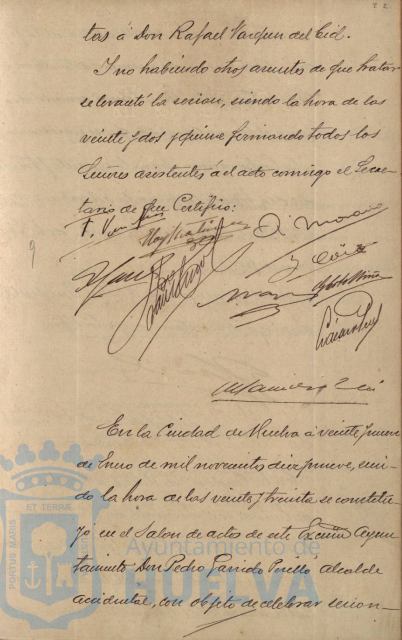 tas á Don Rafael Vazquez del Cid.
Y no habiendo otros asuntos de que tratar
se levantó la sesion, siendo la hora de las
veinte y dos y quince firmando todos los
Señores asistentes á el acto conmigo el Secre-
tario de que Certifico:
En la Ciudad de Huelva á veinte y nueve
de Enero de mil novecientos diez y nueve, sien-
do la hora de las veinte y treinta se constitu-
yó en el Salon de actos de este Excmo Ayun-
tamiento Don Pedro Garrido Perelló Alcalde
accidental, con objeto de celebrar sesion
PORTUS MARIS
ET TERRAE
Ayuntamiento de
HUELVA